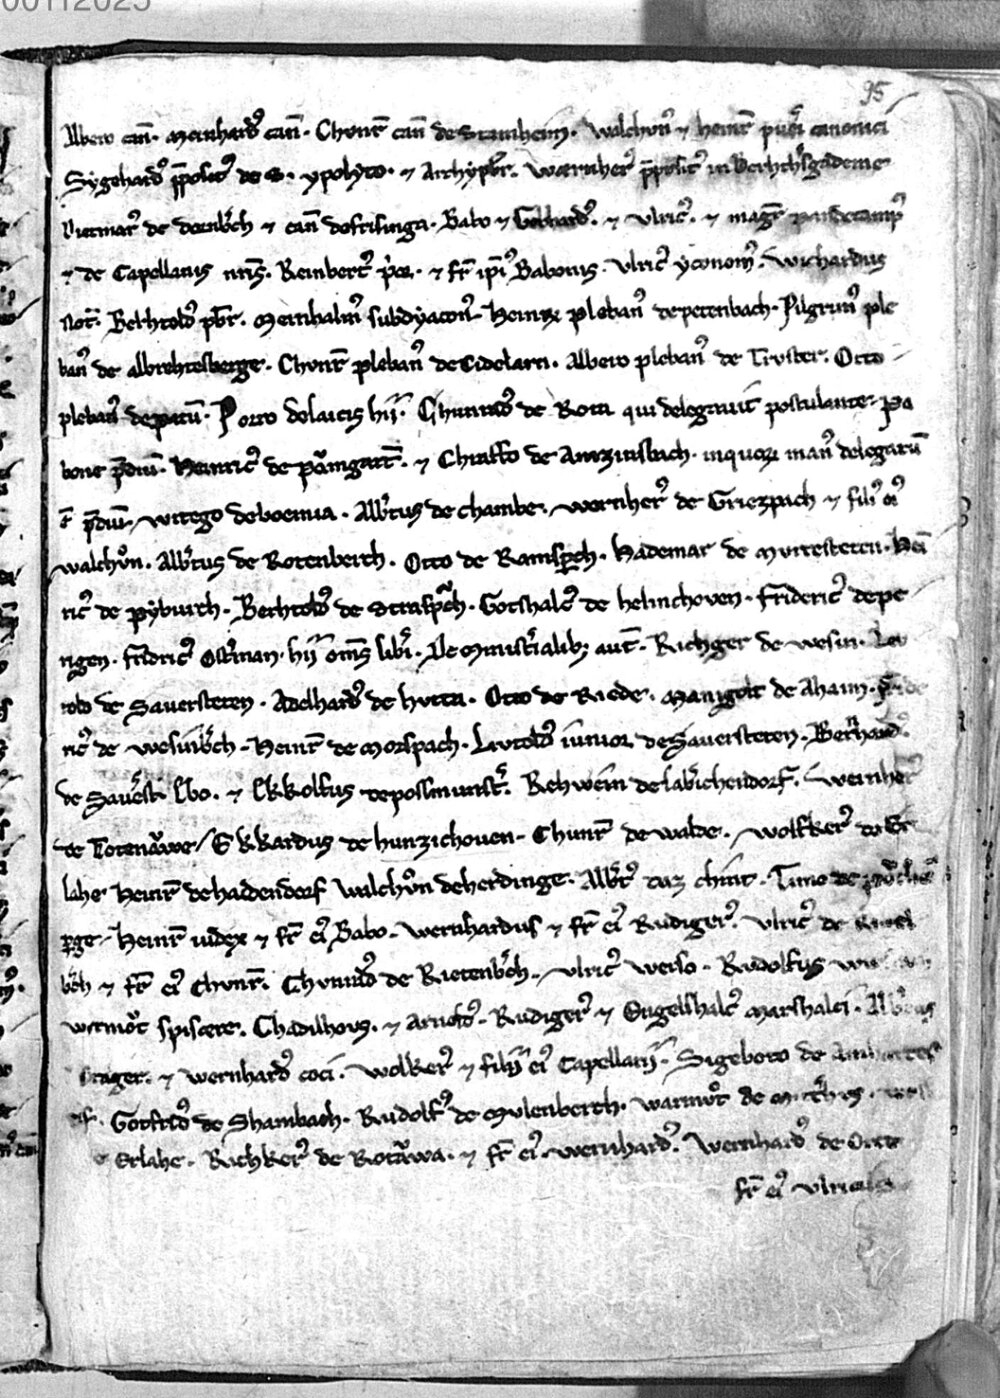 00112025
95
Albero can̄. meinhardꝰ can̄. Chvnr̄ can̄ de Stamheim. Walchvnꝰ ⁊ heinr̄ pueri canonici
Sygehardꝰ p̄positꝰ de S. ypolyto. ⁊ Archypbr̄. Wærnherꝰ p̄positꝰ in Berhthersgademe
Dietmarꝰ de dornbch ⁊ can̄ de frisinga. Babo ⁊ Gebhardꝰ. ⁊ Vlricꝰ. ⁊ magr̄
⁊ de Capellanis nr̄is. Reinbertꝰ ⁊ fr̄ ip̄iꝰ Babonis. Vlricꝰ yconomꝰ. Wichardus
Not̄. Berhtoldꝰ pbr̄. Meinhalmꝰ subdyaconꝰ. Heinr̄ plebanꝰ de petenbach. Pilgrimꝰ ple
banꝰ de albrehtesberge. Chvnr̄ plebanꝰ de Cidelarn. Albero plebanꝰ de Trvster. Otto
plebanꝰ de patū. Porro de laicis hij. Chunradꝰ de Rota qui delegauit postulante Pa
bone p̄diū. Heinricꝰ de pāmgart̄. ⁊ Chraffo de Amzinsbach. in quorum manꝰ delegatū
ē p̄diū. Witego de boemia. Albr̄tus de chambe. Wernherꝰ de Griezpach ⁊ filiꝰ eiꝰ
walchvn. Albr̄tus de Rotenberch. Otto de Ramsperch. Hademar de Mvttesteten. Hei
ricꝰ de pyburch. Berhtoldꝰ de Strasp̄ch. Gotshalcꝰ de helinchoven. Fridericꝰ de pe
ngen. Fridricꝰ Ostman. hij om̄s lib̄i. De Ministialibꝫ aut̄. Richger de Wesin. Lev
told de Sauersteten. Adelhardꝰ de hvtta. Otto de Riede. Manigolt de Ahaim. Fride
ricꝰ de wesinb̄ch. Heinr̄ de Mospach. Livtoldꝰ iunior de Sauersteten. Bernhardꝰ
de Sauest. Ebo. ⁊ Ekkolfus de possmunst. Rehwein de labichendorf. Wernherꝰ
de Totenawe. Ekkardus de hunzichouen. Chunr̄ de walde. Wolfkerꝰ de Er
lahe. Heinr̄ de haidendorf. Walchvn de herdinge. Albr̄tꝰ Timo de
perge. Heinr̄ iudex ⁊ fr̄ eiꝰ Babo. Wernhardus ⁊ fr̄ eiꝰ Rudigerꝰ. Vlricꝰ de
b̄ch ⁊ fr̄ eiꝰ Chvnr̄. Chvnradꝰ de Rietenb̄ch. Vlricꝰ weiso. Rudolfus
wermōt spisære. Chadilhovs. ⁊ Arnoldꝰ. Rudigerꝰ ⁊ Engelshalcꝰ marshalci.
⁊ Wernhardꝰ coci. Wolkerꝰ ⁊ filij eiꝰ Capellarij. Sigeboto de
Gotfridꝰ de Shambach. Rudolfꝰ de Mvlenberch. Warmōt de
Erlahe. Richkerꝰ de Rotawa. ⁊ fr̄ eiꝰ Wernhardꝰ. Wernhardꝰ de
fr̄ eiꝰ Vlricus